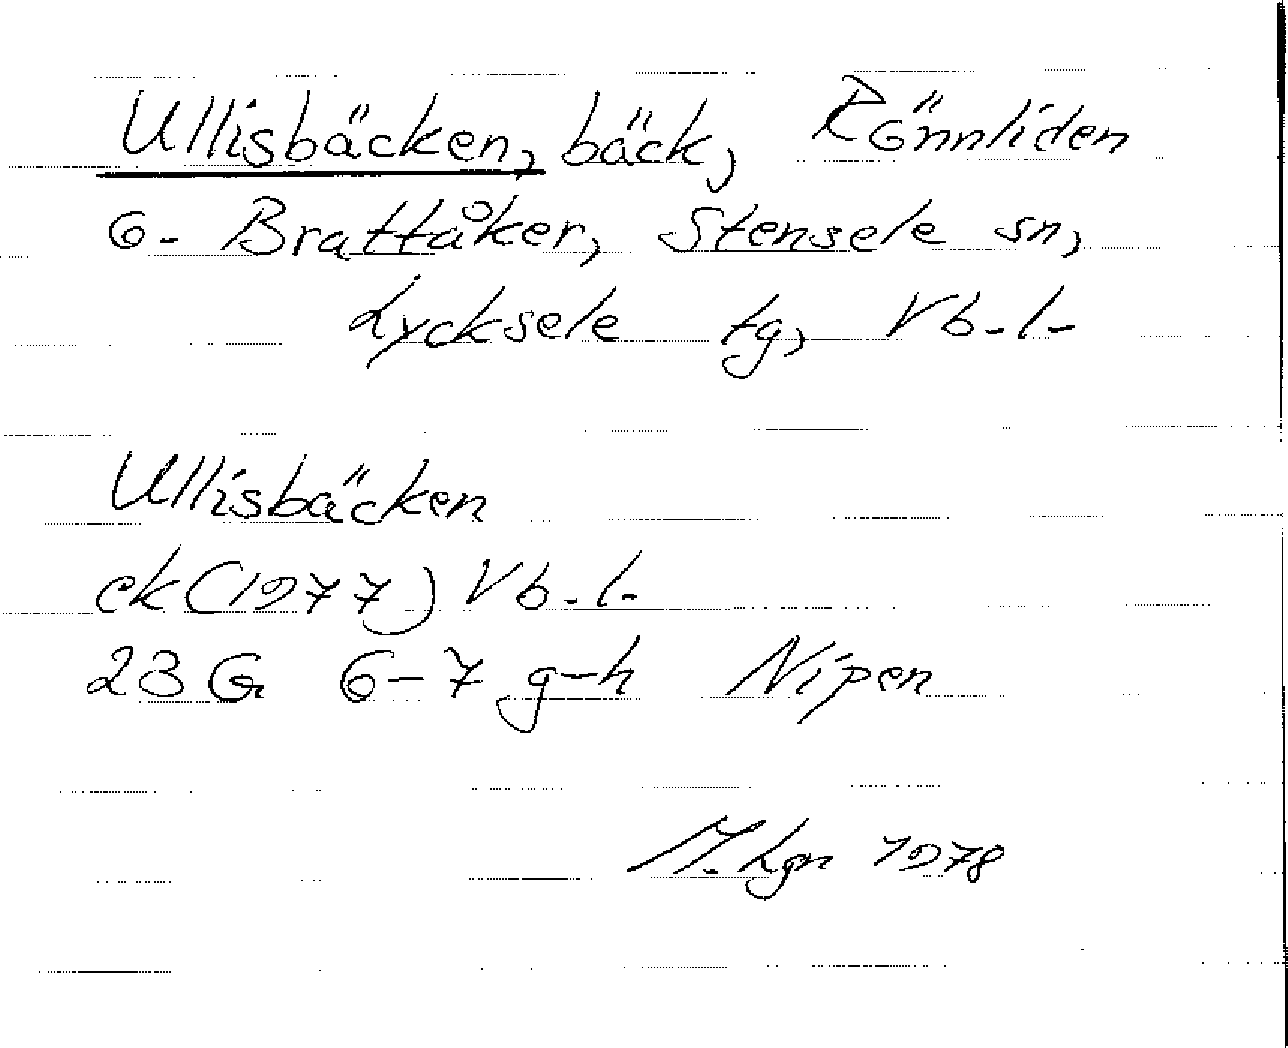 Ullisbäcken, bäck, Rönnliden
o. Brattåker, Stensele sn,
Lycksele tg, Vb. l.
Ullisbäcken
ek (1977) Vb. l.
23 G 6-7 g-h Nipen
M. Lgn 1978